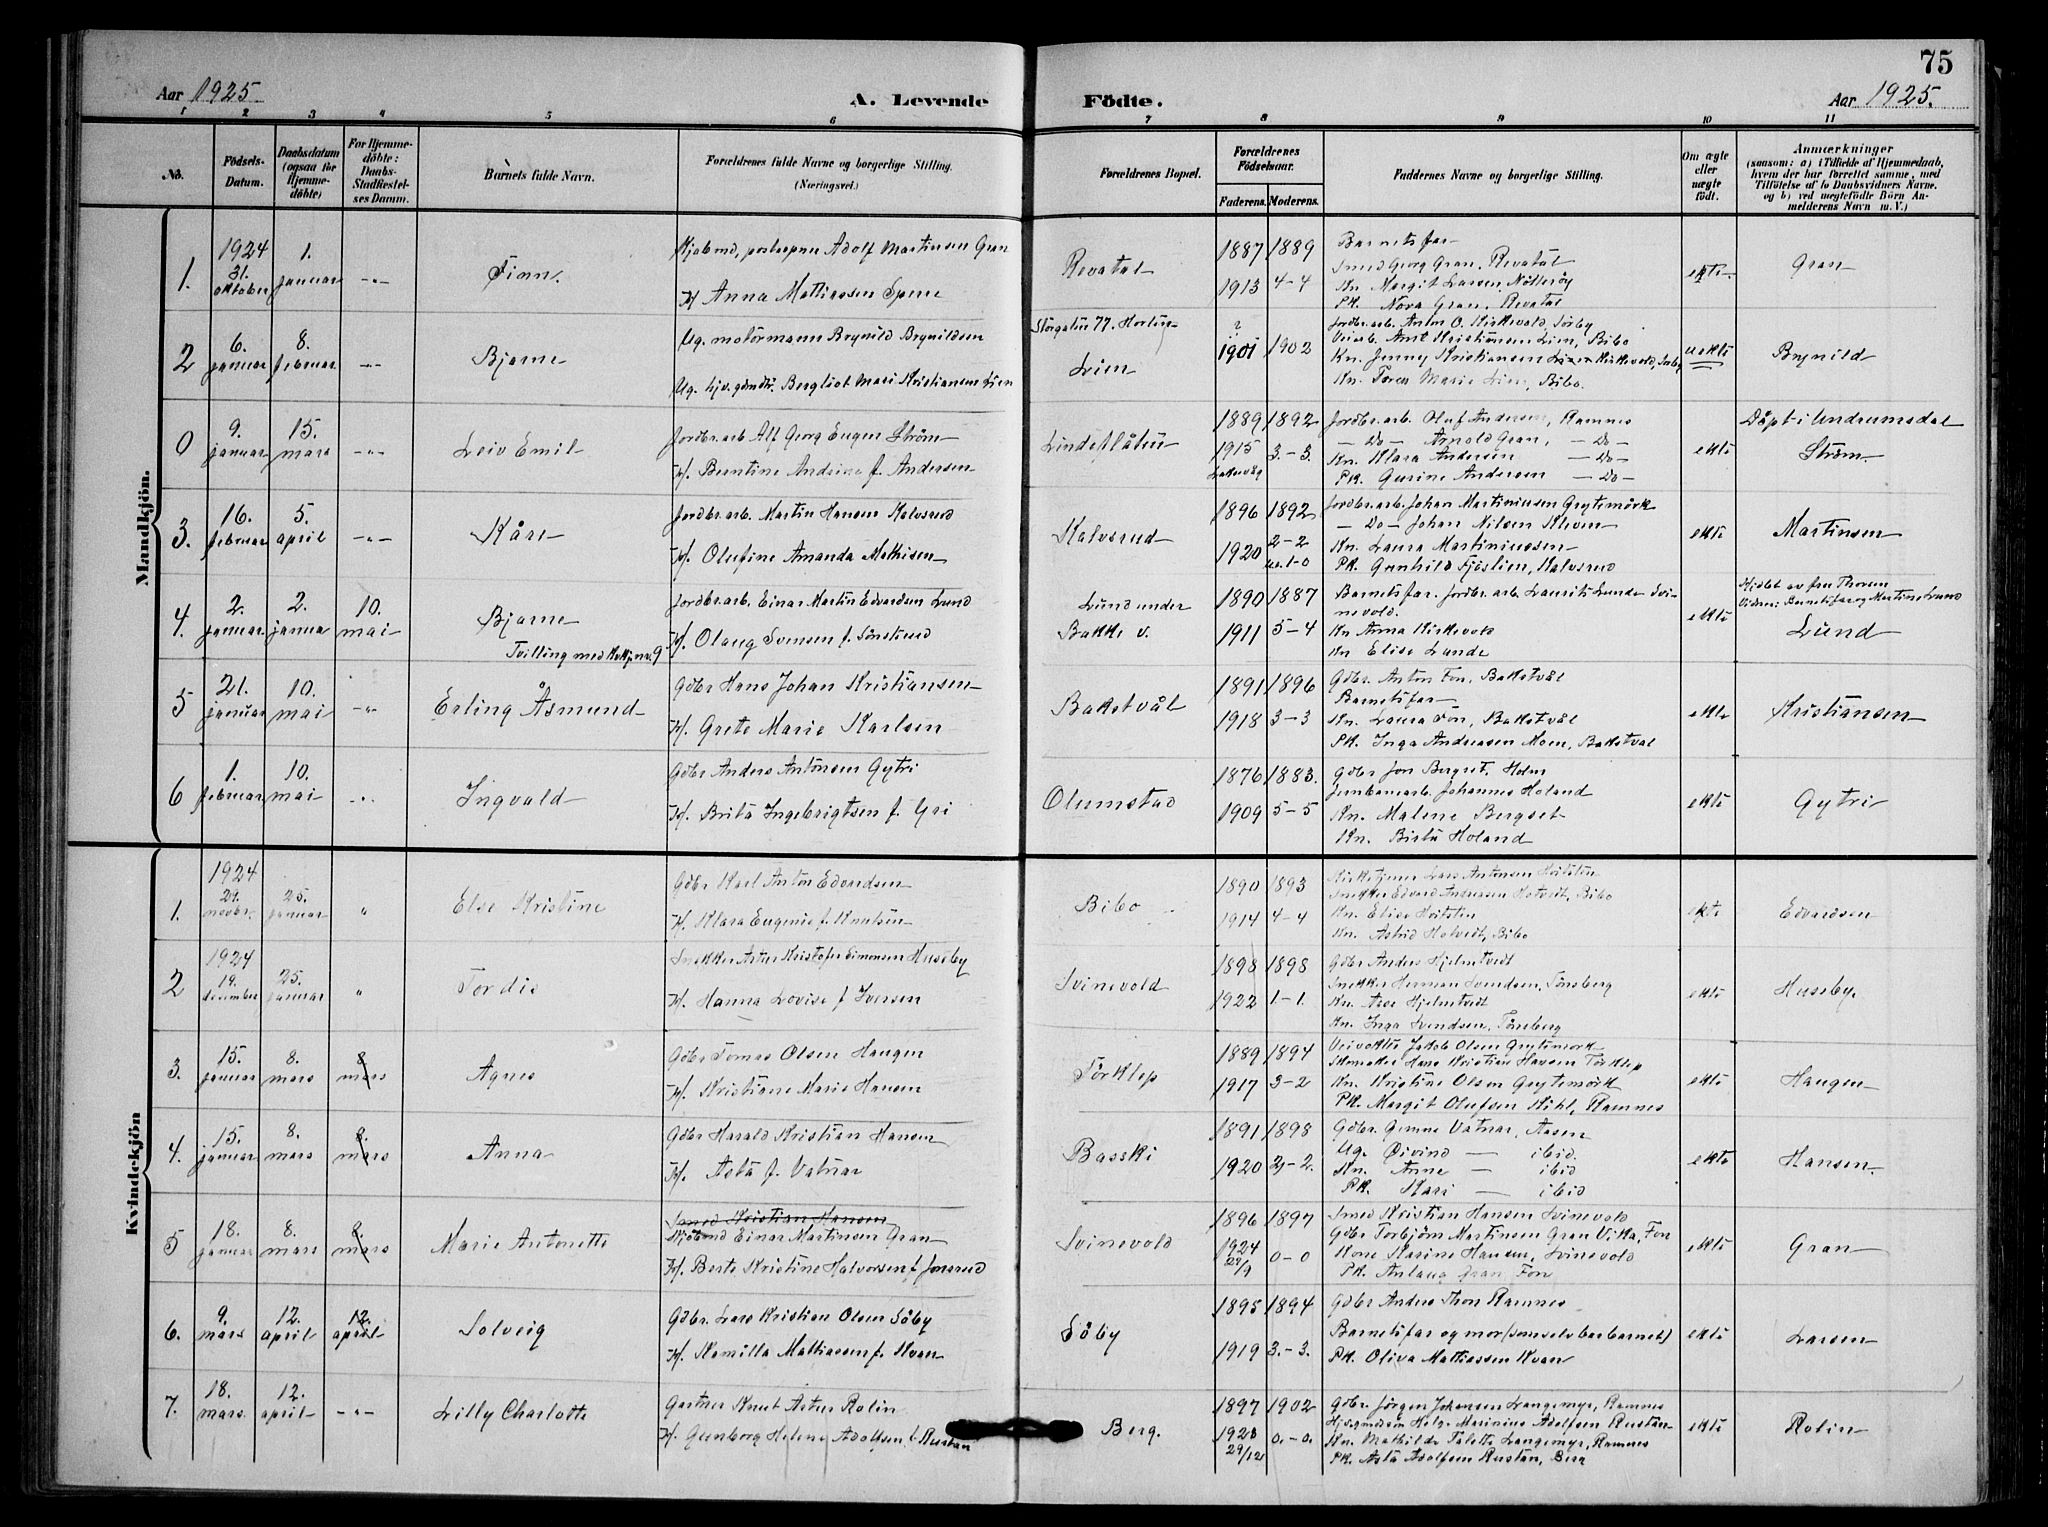 75
Aar 1925.
A. Levende
Födte.
Aar 1925.
1 2 3 4 5 6 7 8 9 10 11
No.
Födsels-Datum.
Daabsdatum (ogsaa for Hjemmedöbte)
For Hjemmedöbte: Daabs-Stadfestelses Datum.
Barnets fulde Navn.
Forældrenes fulde Navne og borgerlige Stilling. (Næringsvei.)
Forældrenes Bopæl.
Forældrenes Födselsaar.
Faderens. Moderens.
Faddernes Navne og borgerlige Stilling.
Om ægte eller uægte födt.
Anmærkninger
(saasom: a) i Tilfælde af Hjemmedaab, hvem der har forrettet samme, med Tilföielse af to Daabsvidners Navne, og b) ved uægtefödte Börn Anmelderens Navn m. V.)
Mandkjön.
1. 1924 31. oktober 1. januar -"- Finn.
Adolf Martinsen Gran
H/ Anna Mathiassen
Revatal
1887 1889
1913 4-4
Barnets far
Smed Georg Gran, Revatal
Kn. Margit Larsen, Nötteröy
PK. Nora Gran, Revatal
ekte Gran
2 6. januar 8. februar -"- Bjarne
Ug. motormann Brynild Brynildsen
Ug. Bergliot Mari Kristiansen Lien
Storgaten 77. Horten
Lien
? 1901 1902
Jordbr.arb. Anton O. Kirkevold,
Arnt Kristiansen Lien, Bibo
Kn. Jenny Kristiansen Kirkevold,
Kn. Marie Lien, Bibo.
uekte Brynild
0 9. januar 15. mars -"- Leiv Emil
Jordbr.arb Alf Georg Eugen Ström
H/. Berntine Andrine f. Andersen
Lindeflåten
1889 1892
1915 3.-3.
Jordbr.arb. Oluf Andersen, Ramnes
-Do- Arnold Gran, -Do-
Kn. Klara Andersen -Do-
PK. Gusine Andersen -Do-
ekte
Döpt i Undrumsdal
Ström.
3. 16. februar 5. april -"- Kåre
Jordbr.arb. Martin Hansen Kalvsrud
H/. Olufine Amanda Mathisen
Kalvsrud
1896 1892
1920 2-2
Jordbr.arb. Johan Martiniusen Grytemörk
-Do- Johan Nilsen Kleven
Kn. Laura Martiniussen
PK. Gunhild Fjöslien, Kalvsrud
ekte Martinsen
4. 2. januar 2. janua 10. mai Bjarne
Tvilling med
H/. Olaug Svensen f.
Jordbr.arb. Einar Martin Edvardsen Lund
Lund under
Bakke v.
1890 1887
1911 5-4
Barnets far. Jordbr.arb Laurits Lunde Svinevold.
Kn Anna Kirkevold
Kn Elise Lunde
ekte
Hjdbt av fru Thoresen
Vidner: Barnets far og Martine Lund
Lund
5 21. januar 10. mai -"- Erling Åsmund
Gdbr Hans Johan Kristiansen
H/. Grete Marie Karlsen
Bakstvål
1891 1896
1918 3-3
Gdbr. Anton Fon, Bakstvål
Barnets far
Kn. Laura Fon, Bakstvål
PK. Inga Andreasen Moen, Bakstval
ekte Kristiansen
6 1. februar 10. mai -"- Ingvald
Gdbr Anders Antonsen Gytri
H/. Brita Ingebrigtsen f. Gri
Olumstad
1876 1883.
1909 5-5
Gdbr Jon Bergset, Holm
Jernbanearb. Johannes Holand
Kn. Malene Bergset
Kn. Birta Holand
ekte Gytri
Kvindekjön
1. 1924 29. novbr. 25. januar " Else Kristine
Gdbr Karl Anton Edvardsen
H/. Klara Eugenie f. Knutsen
Bibo
1890 1893
1914 4-4
Kirketjener Lars Antonsen
Snekker Edvard Andersen Hotvedt, Bibo
Kn. Elise
Kn. Astrid Hotvedt, Bibo
ekte Edvardsen
2 1924 19. desember 25. januar " Tordis
Snekker Artur Kristofer Simonsen Huseby
H/. Hanna Lovise f Iversen
Svinevold
1898 1898
1922 1.-1.
Gdbr Anders Hjelmtvedt
Snekker Herman Svendsen, Tönsberg
Kn. Hjelmtvedt
Kn. Inga Svendsen, Tönsberg
ekte Huseby.
3. 15. januar 8. mars 8. mars Agnes
Gdbr Tomas Olsen Haugen
H/. Kristiane Marie Hansen
Törklep
1889 1894
1917 3-2
Veivokter Jakob Olsen Grytemörk
Skomaker Hans Kristian Hansen Törklep
Kn. Kristine Olsen Grytemörk
PK. Margit Olufsen Kihl, Ramnes
ekte Haugen
4. 15. januar 8. mars 8. mars Anna
Gdbr Harald Kristian Hansen
H/. Asta f. Vatnar
Basski
1891 1898
1920 2-2.
Gdbr. Vatnar, Aasen
Ug. Öivind — ibid.
Kn. Anne — ibid
PK. Kari — ibid
ekte Hansen.
5 18. januar 8. mars 8. mars Marie Antonette
Smed Kristian Hansen
Einar Martinsen Gran
H/. Berte Kristine Halvorsen f. Jonsrud
Svinevold
1896 1897
1924 29/9 0-0
Smed Kristian Hansen Svinevold
Gdbr Torbjörn Martinsen Gran Vika, Fon
Kone Karine Hansen, Svinevold
PK. Aslaug Gran Fon
ekte Gran
6. 9. mars 12. april 12. april Solveig
Gdbr. Lars Kristian Olsen Söby
H/. Kamilla Mathiassen f. Kvan
Söby
1895 1894
1919 3.-3.
Gdbr Anders Thon Ramnes
Barnets far og mor (som selv bar barnet)
PK. Oliva Mathiassen Kvan
ekte Larsen
7. 18. mars 12. april -"- Lilly Charlotte
Gartner Knut Artur Rolin
H/. Gunborg Helene Adolfsen f. Rustan
Berg.
1897 1902
1923 29/12 0.-0.
Gdbr. Jörgen Johansen Langemyr, Ramnes
Helge Marinius Adolfsen Rustan
Kn. Mathilde Talette Langemyr, Ramnes
PK. Asta Adolfsen Rustan, Berg
ekte Rolin